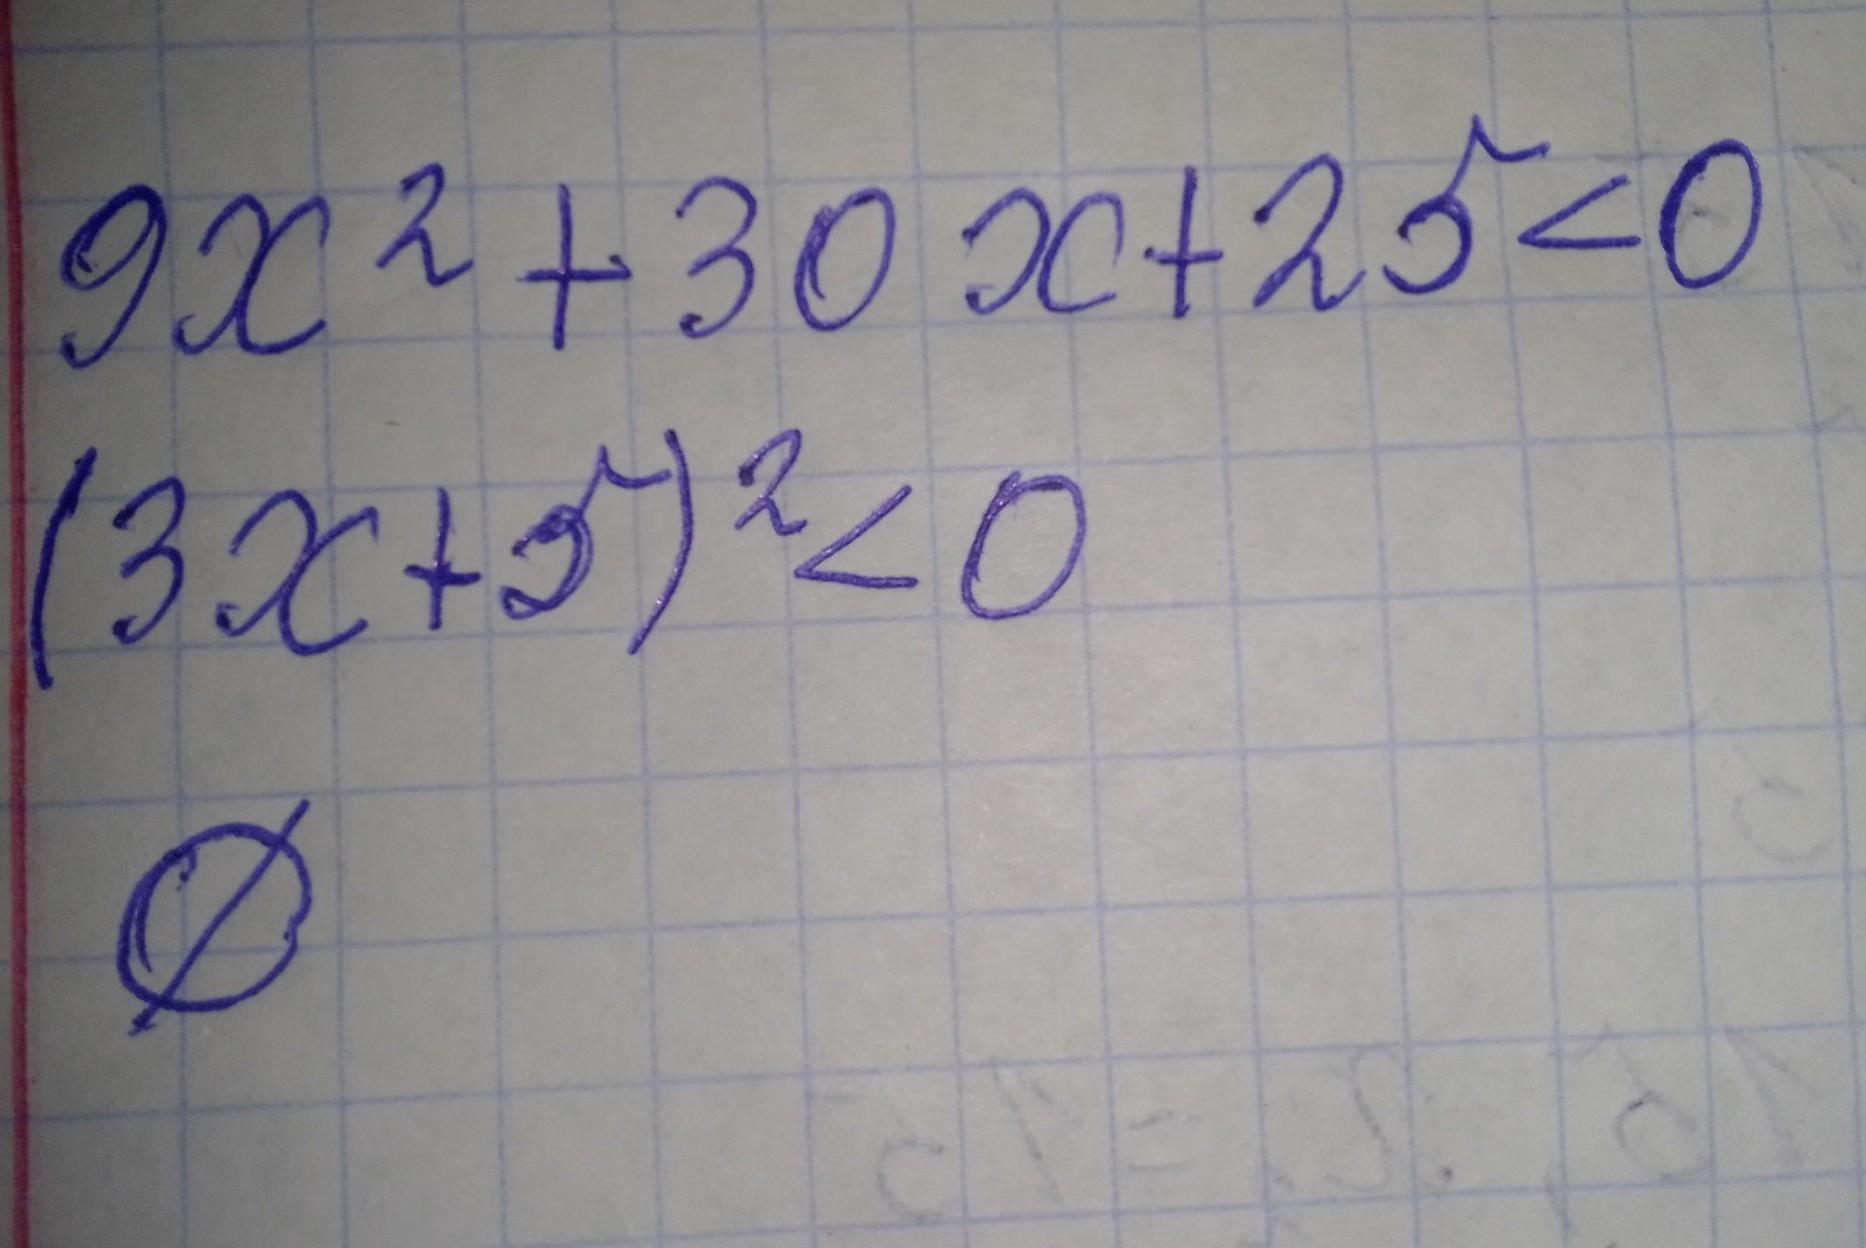 9x² + 30x + 25 < 0
(3x + 5)² < 0
∅